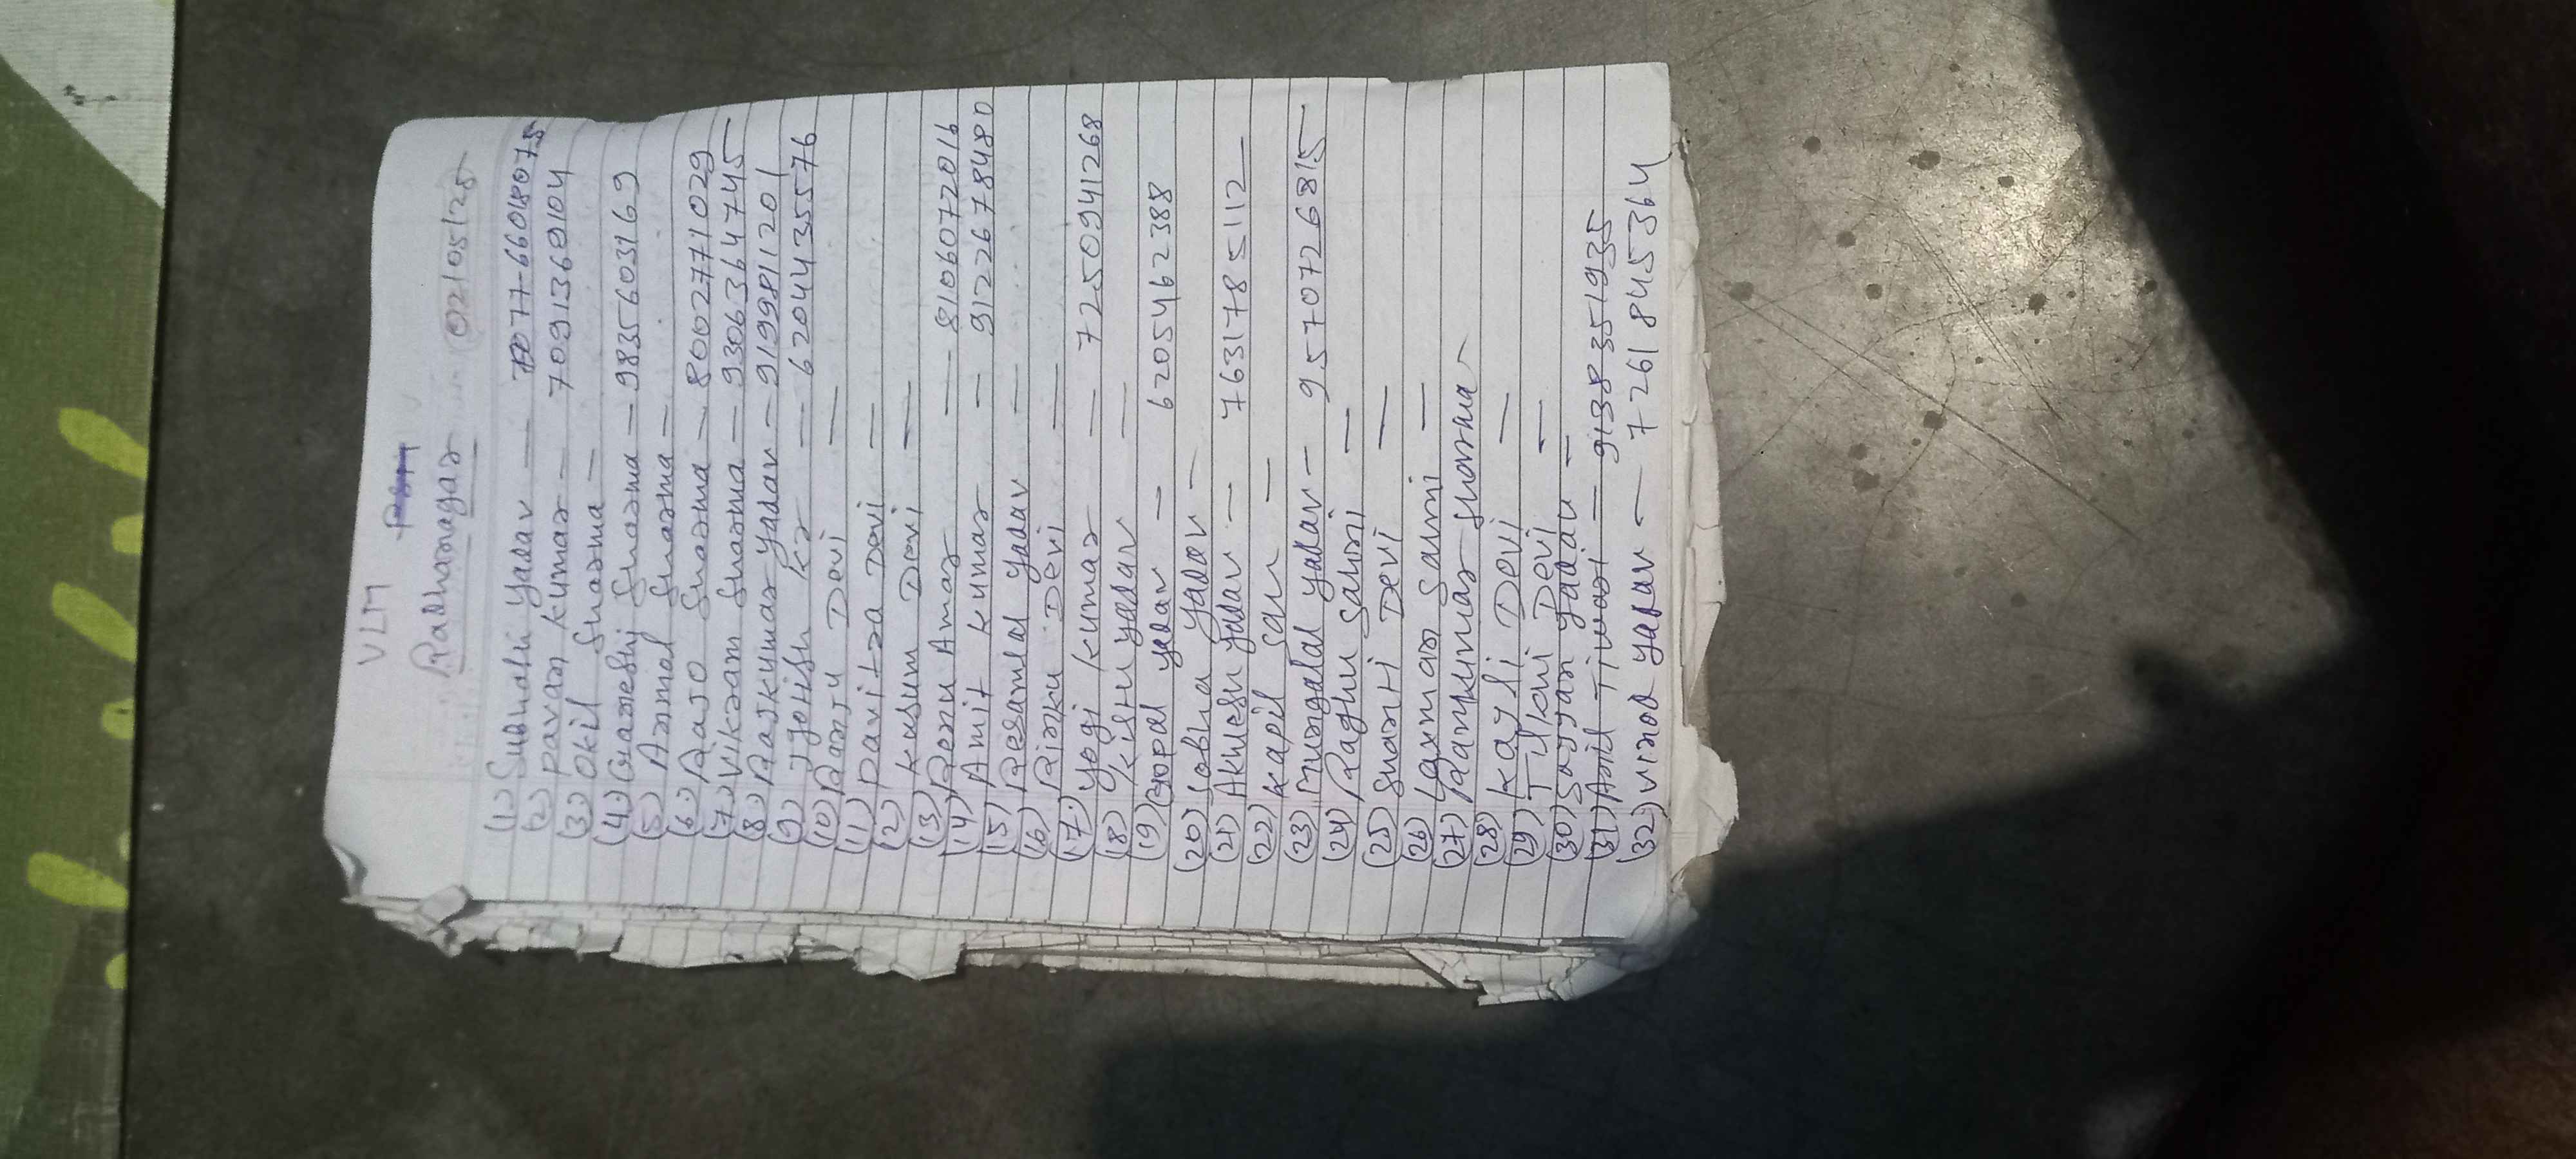 VLM
Radhanagar 02/05/25
(1.) Subhash Yadav — 7077-66018075
(2.) Pavan Kumar — 7091369104
(3.) Okil Sharma —
(4.) Ganesh Sharma — 9835603169
(5) Anmol Sharma —
(6.) Rajo Sharma — 8002771029
(7.) Vikram Sharma — 9306364745
(8.) Rajkumar Yadav — 9199811201
(9.) Jyotish Kr — 6204435576
(10) Ranju Devi —
(11) Pavitra Devi —
(12) Kusum Devi —
(13) Renu Amar — 8106072016
(14) Amit Kumar — 9122678480
(15) Resamlal Yadav —
(16) Rinku Devi —
(17.) Yogi Kumar — 7250941268
(18) Kishu Yadav —
(19) Gopal Yadav — 6205462388
(20) Yadav —
(21) Akhlesh Yadav — 7631785112
(22) Kapil Sah —
(23) Mungalal Yadav — 9570726815
(24) Raghu Sahni —
(25) Shanti Devi —
(26) Laxman Sahni —
(27) Ramkumar Sharma —
(28) Devi —
(29) Tilkhi Devi —
(30) Yadav —
(31) Anil Tiwari — 9138351935
(32) Vinod Yadav — 7261845364